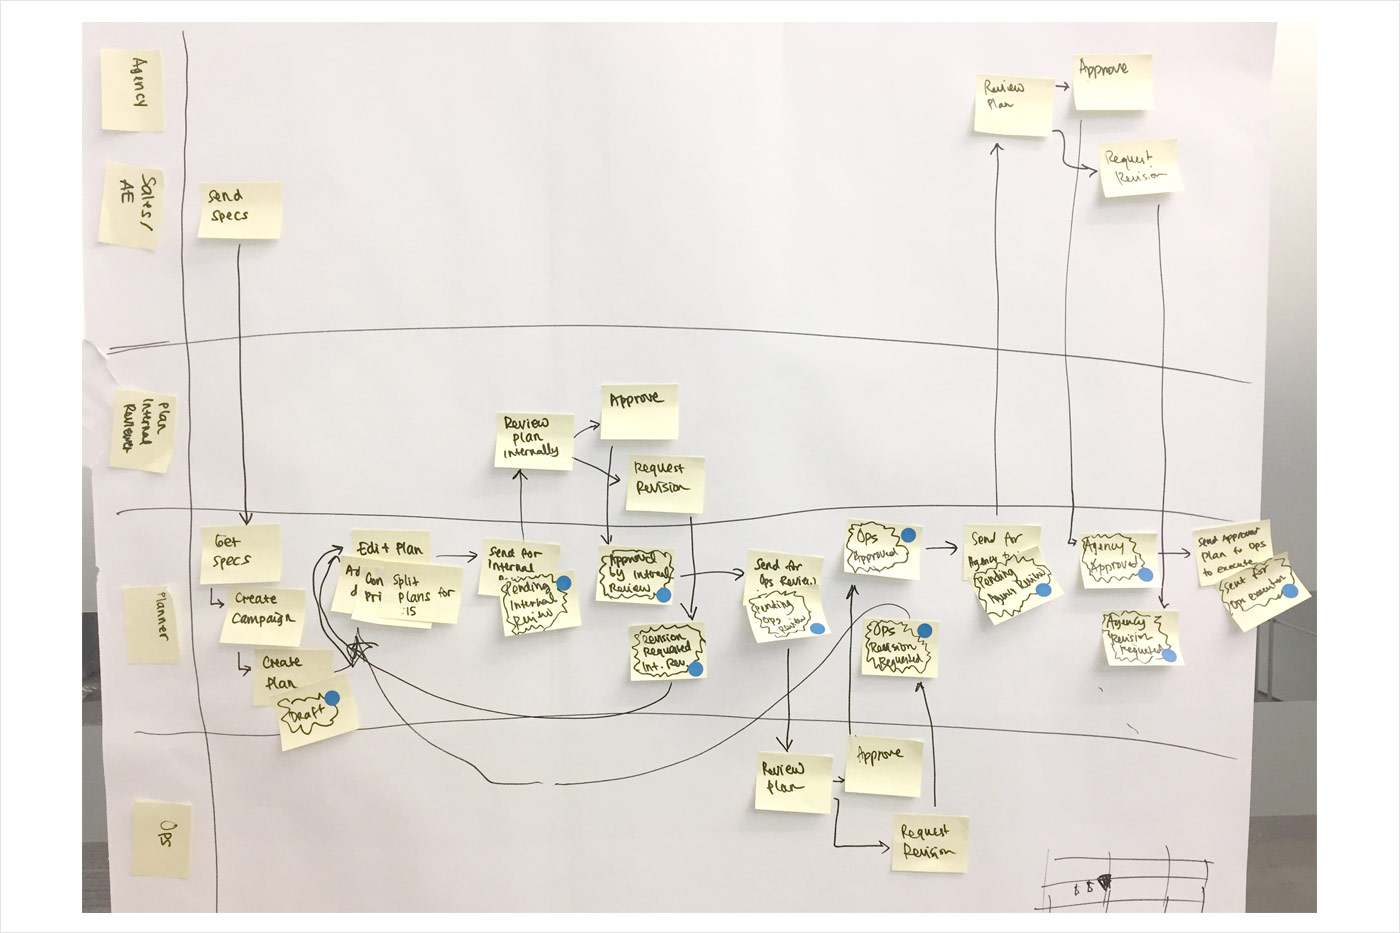 Agency
Sales/
AE
Send
specs
Review
Plan
Approve
Request
Revision
Plan
Internal
Reviewer
Review
Plan
Internally
Approve
Request
Revision
Planner
Get
specs
Create
Campaign
Create
Plan
Draft
Edit Plan
Ad
d
Con
Pri
Split
Plans for
:15
Send for
Internal
Pending
Internal
Review
Approved
by Internal
Review
Revision
Requested
Int. Rev.
Send for
Ops Review
Pending
Ops
Review
Ops
Approved
Ops
Revision
Requested
Send for
Agency
Pending
Agency Review
Agency
Approved
Agency
Revision
requested
Send Approved
Plan to Ops
to execute
Sent for
Ops Execution
Ops
Review
Plan
Approve
Request
Revision
$ $